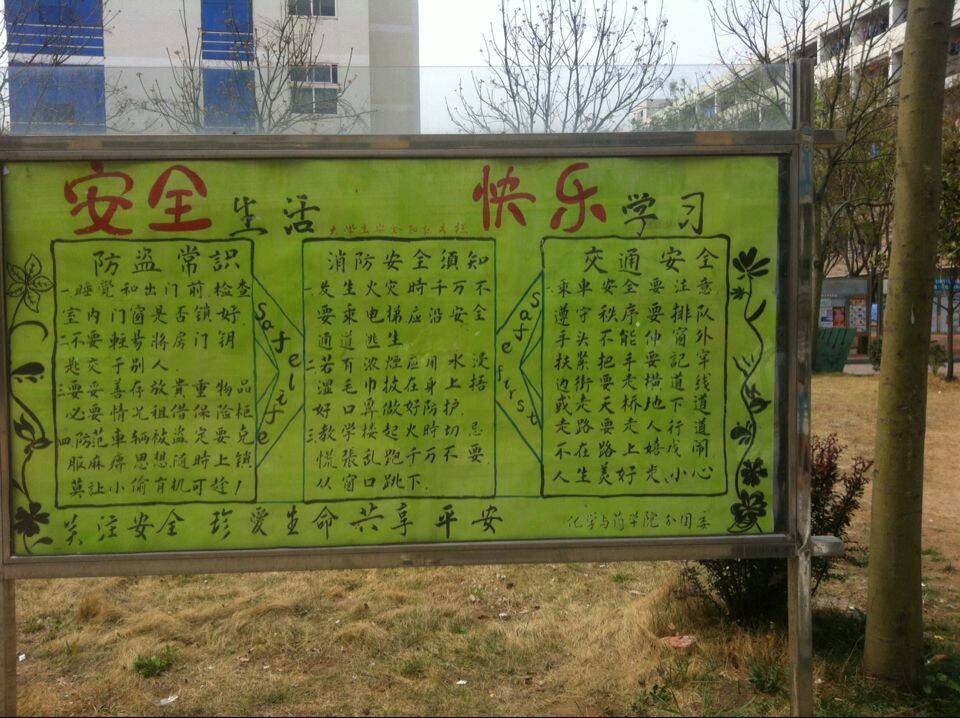 安全生活 快乐学习
防盗常識
一.睡觉和出门前.检查
室内门窗是否锁好.
二.不要輕易將房门钥
匙交于别人.
三.要妥善存放貴重物品
必要情况租借保险柜
四.防范車辆被盗定要克
服麻痹思想.随時上锁
莫让小偷有机可趁!
Safe Life
消防安全須知
一.发生火灾時千万不
要乘电梯应沿安全
通道逃生
二.若有浓煙应用水浸
湿毛巾披在身上捂
好口鼻做好防护.
三.教学楼起火時切忌
慌張乱跑千万不要
从窗口跳下.
Safe first
交通安全
乘車安全要注意
遵守秩序要排队
手头不能伸窗外
扶紧把手要記
边街走横道线
或走天桥地下道
走路要走人行道
不在路上嬉戏闹
人生美好小心
关注安全 珍爱生命共享平安
化学与药学院分团委